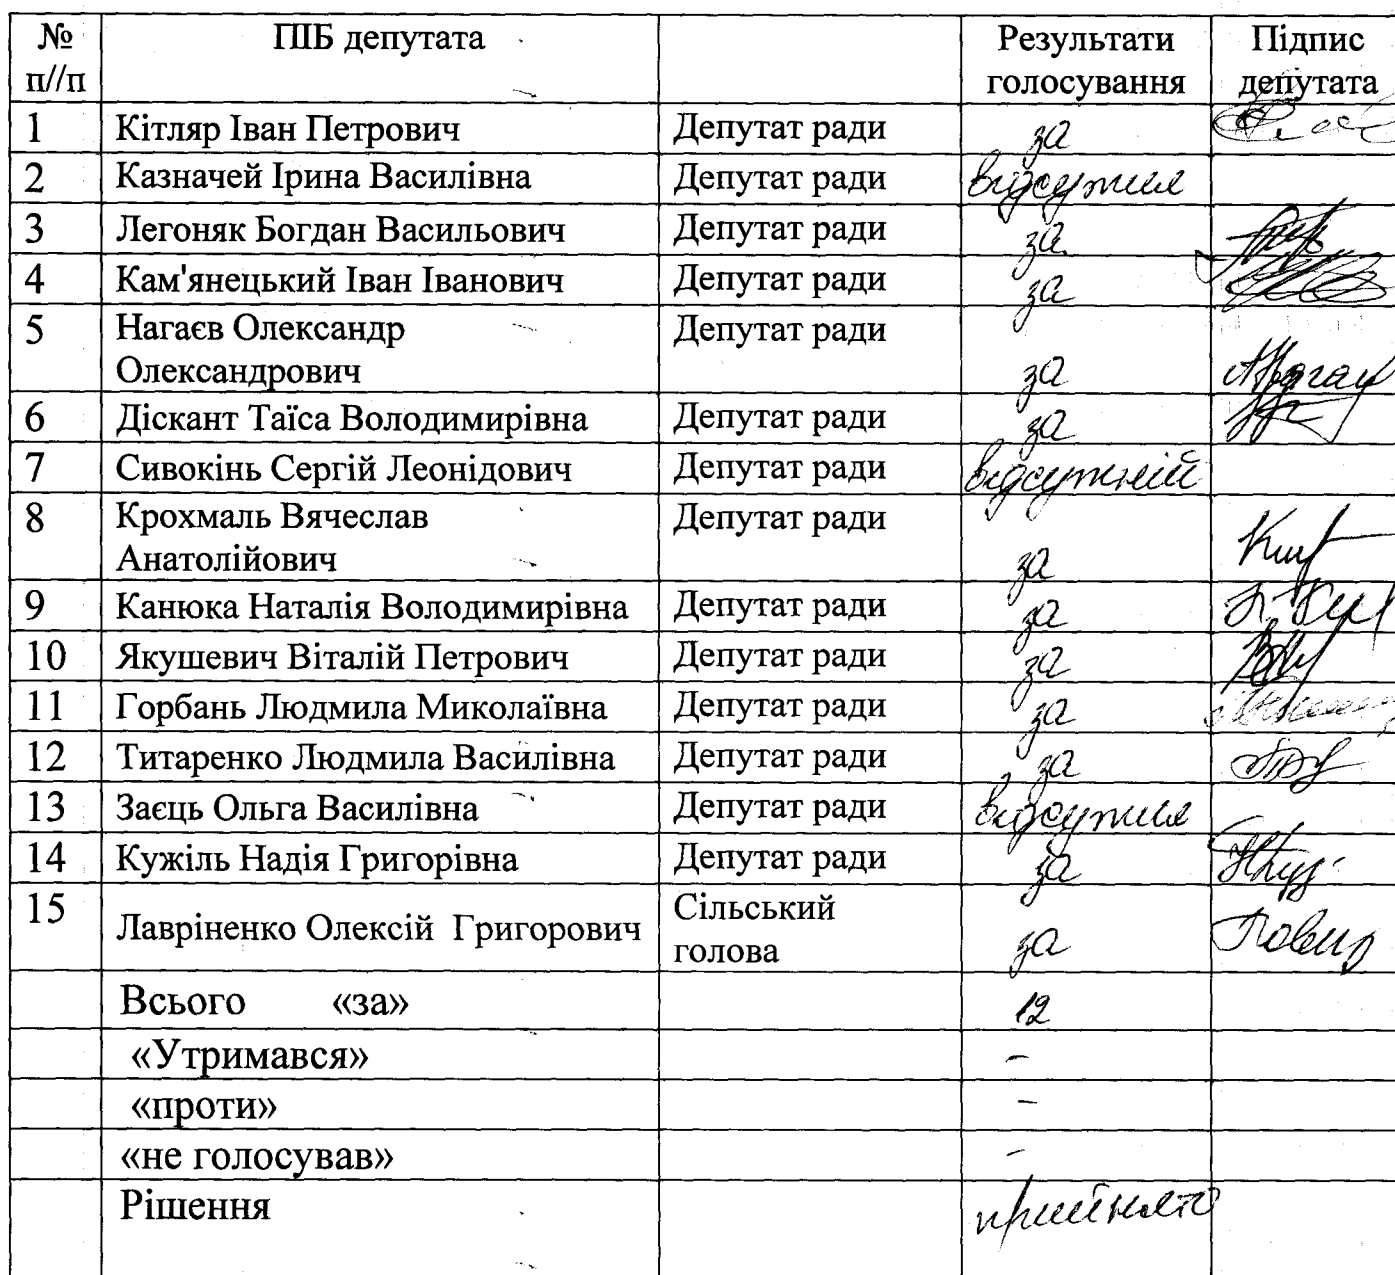 № ПІБ депутата Результати Підпис
п//п голосування депутата
1 Кітляр Іван Петрович Депутат ради за
2 Казначей Ірина Василівна Депутат ради відсутня
3 Легоняк Богдан Васильович Депутат ради за
4 Кам'янецький Іван Іванович Депутат ради за
5 Нагаєв Олександр Депутат ради
Олександрович за
6 Діскант Таїса Володимирівна Депутат ради за
7 Сивокінь Сергій Леонідович Депутат ради відсутній
8 Крохмаль Вячеслав Депутат ради
Анатолійович за
9 Канюка Наталія Володимирівна Депутат ради за
10 Якушевич Віталій Петрович Депутат ради за
11 Горбань Людмила Миколаївна Депутат ради за
12 Титаренко Людмила Василівна Депутат ради за
13 Заєць Ольга Василівна Депутат ради відсутня
14 Кужіль Надія Григорівна Депутат ради за
15 Сільський
Лавріненко Олексій Григорович за
голова
Всього «за» 12
«Утримався» -
«проти» -
«не голосував» -
Рішення прийнято